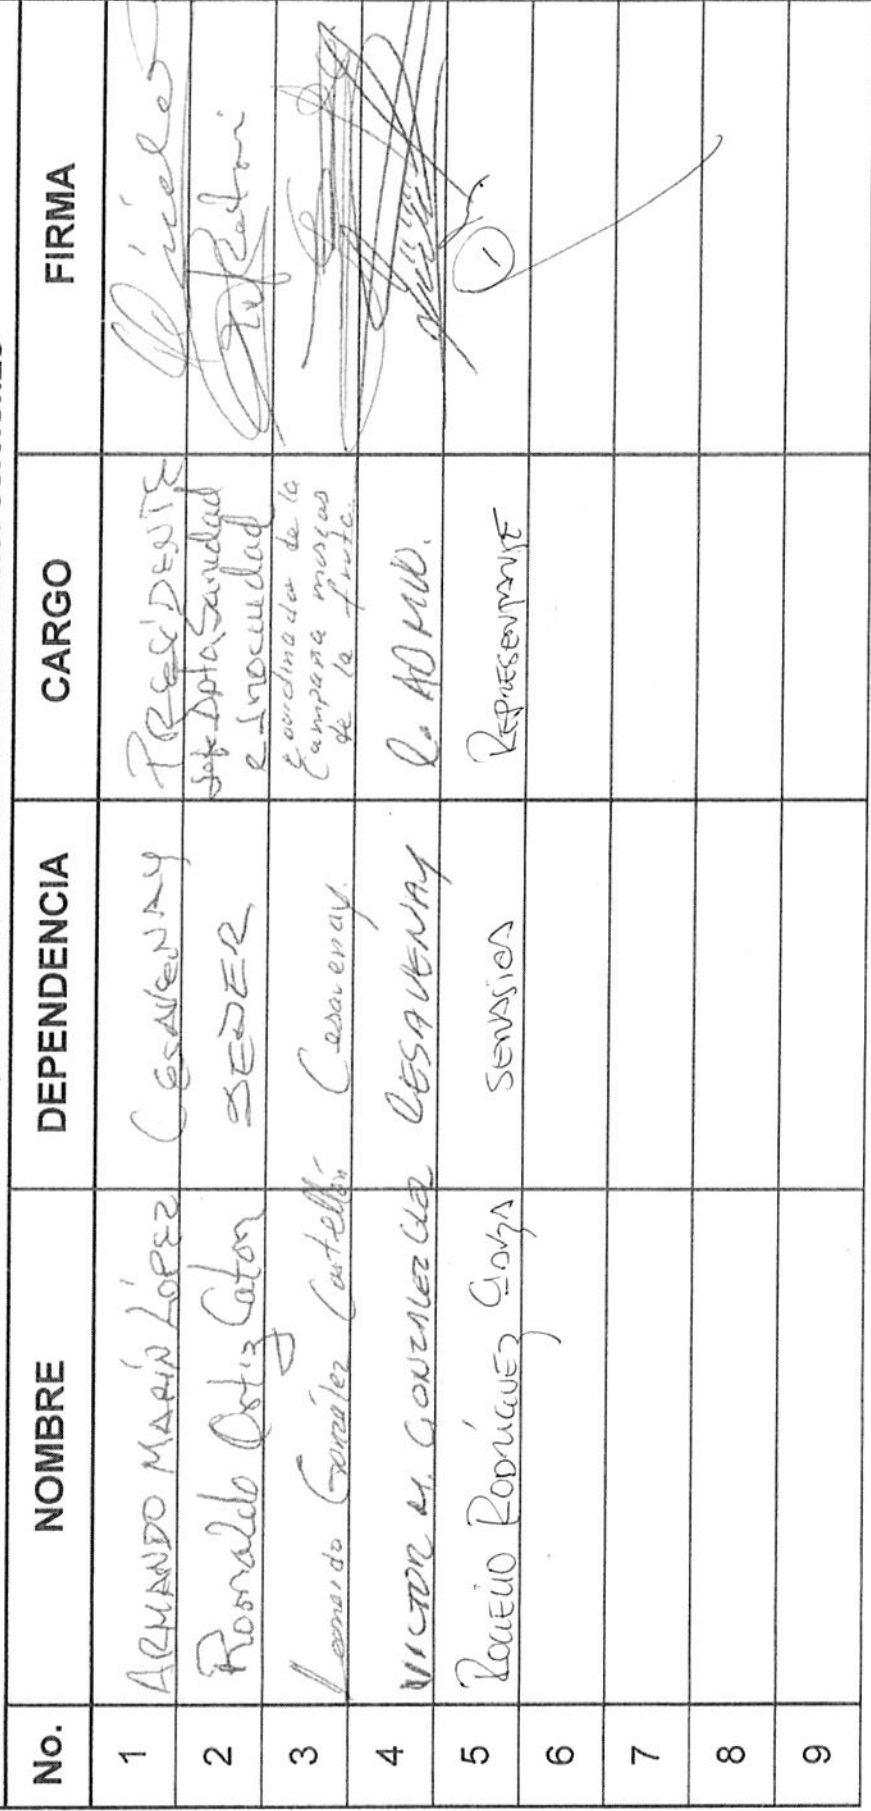 No. NOMBRE DEPENDENCIA CARGO FIRMA
1 ARMANDO MARÍN LÓPEZ CESAVENAY PRESIDENTE
2 Romaldo Ortiz Caton SEDER Jefe Dpto Sanidad
e Inocuidad
3 Leonardo González Castellón Cesavenay. Coordinador de la
Campaña moscas
de la fruta.
4 VICTOR M. GONZALEZ CESAVENAY C. ADMVO.
5 ROGELIO RODRÍGUEZ SENASICA REPRESENTANTE
1
6
7
8
9